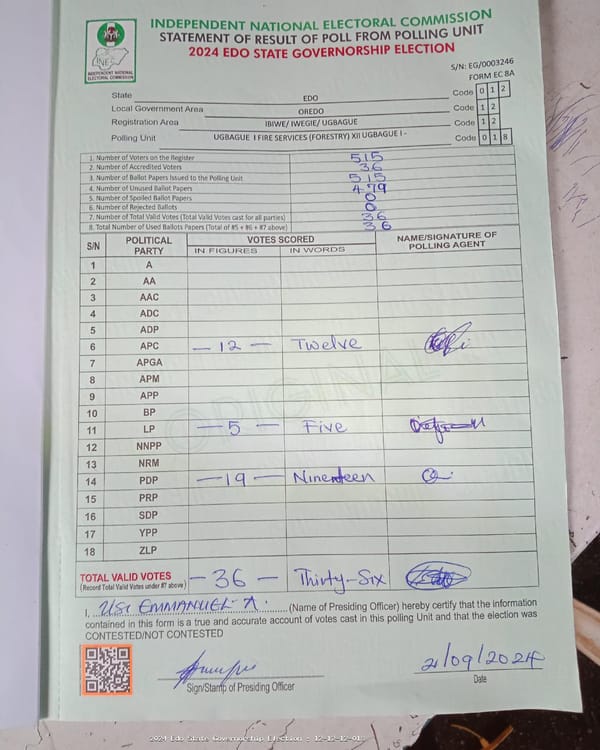 INDEPENDENT NATIONAL ELECTORAL COMMISSION
STATEMENT OF RESULT OF POLL FROM POLLING UNIT
2024 EDO STATE GOVERNORSHIP ELECTION
INEC
INDEPENDENT NATIONAL ELECTORAL COMMISSION
S/N: EG/0003246
FORM EC 8A
State EDO Code 0 1 2
Local Government Area OREDO Code 1 2
Registration Area IBIWE/ IWEGIE/ UGBAGUE Code 1 2
Polling Unit UGBAGUE I FIRE SERVICES (FORESTRY) XII UGBAGUE I - Code 0 1 8
1. Number of Voters on the Register 515
2. Number of Accredited Voters 36
3. Number of Ballot Papers Issued to the Polling Unit 515
4. Number of Unused Ballot Papers 479
5. Number of Spoiled Ballot Papers 0
6. Number of Rejected Ballots 0
7. Number of Total Valid Votes (Total Valid Votes cast for all parties) 36
8. Total Number of Used Ballots Papers (Total of #5 + #6 + #7 above) 36
S/N POLITICAL PARTY VOTES SCORED NAME/SIGNATURE OF POLLING AGENT
IN FIGURES IN WORDS
1 A
2 AA
3 AAC
4 ADC
5 ADP
6 APC - 12 - Twelve
7 APGA
8 APM
9 APP
10 BP
11 LP - 5 - Five
12 NNPP
13 NRM
14 PDP - 19 - Nineteen
15 PRP
16 SDP
17 YPP
18 ZLP
ORIGINAL
TOTAL VALID VOTES - 36 - Thirty-Six
(Record Total Valid Votes under #7 above)
I, USI EMMANUEL A. (Name of Presiding Officer) hereby certify that the information
contained in this form is a true and accurate account of votes cast in this polling Unit and that the election was
CONTESTED/NOT CONTESTED
Sign/Stamp of Presiding Officer
21/09/2024
Date
2024 Edo State Governorship Election : 12-12-12-018